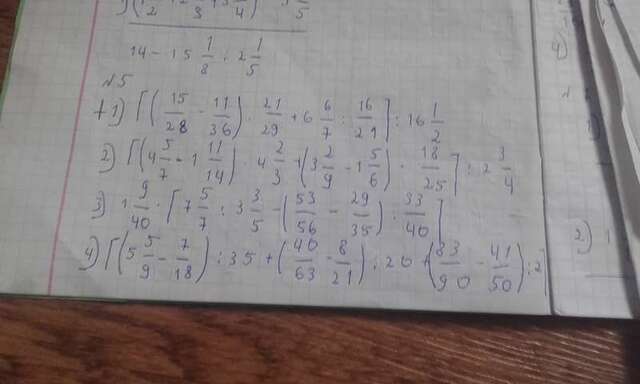 14 - 15 1/8 : 2 1/5
№5
1) [(15/28 - 11/36) · 21/29 + 6 6/7 : 16/21] : 16 1/2
2) [(4 5/7 - 1 11/14) · 4 2/3 + (3 2/9 - 1 5/6) · 18/25] : 2 3/4
3) 1 9/40 · [7 5/7 : 3 3/5 - (53/56 - 29/35) : 33/40]
4) [(5 5/9 - 7/18) : 35 + (40/63 - 8/21) : 20 + (83/90 - 41/50) : 2
4)
2) 1